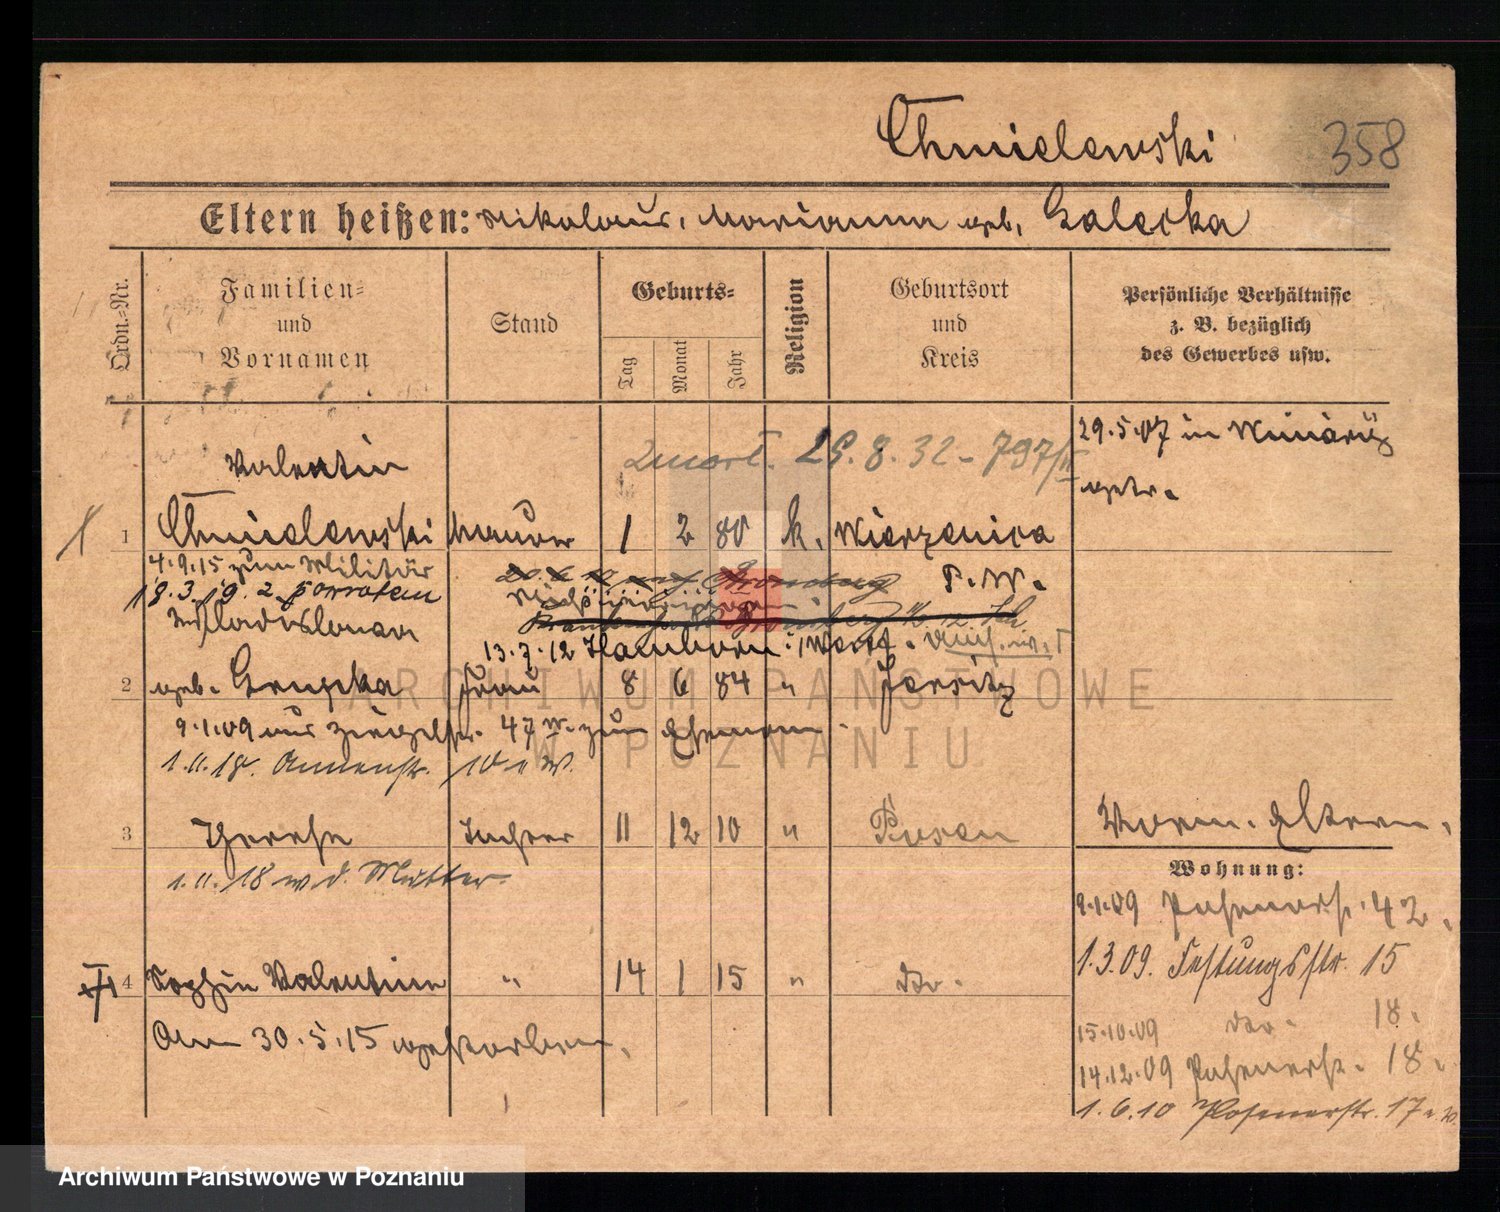 Chmielewski
358
Eltern heißen: Nikolaus, Marianna geb. Galecka
Ordn.-Nr.
Familien= und Vornamen
Stand
Geburts=
Tag
Monat
Jahr
Religion
Geburtsort und Kreis
Persönliche Verhältnisse z. B. bezüglich des Gewerbes usw.
29.5.07 in
getr.
Zmarł. 29.8.32 - 797/II
Valentin
1 Chmielewski Maurer 1 2 80 k. Wierzenica
P. W.
4.9.15 zum Militär
18.3.19. 2.
Wladislawa
13.7.12 Hamborn
2 geb. Frau 8 6 84 " Jersitz
9.1.09 aus 47 W. zum Ehemann
1.11.18. Annenstr. 10 a W.
3 Therese Tochter 11 12 10 " Posen
1.11.18 w d. Mutter
Vorm. Eltern.
Wohnung:
9.1.09 Posenerstr. 42.
1.3.09. Festungsstr. 15
15.10.09 do. 18.
14.12.09 Posenerstr. 18.
1.6.10 Posenerstr. 17 a. W.
4 Sophie Valentine " 14 1 15 " do.
Am 30.5.15 gestorben.
ARCHIWUM PAŃSTWOWE
W POZNANIU
Archiwum Państwowe w Poznaniu